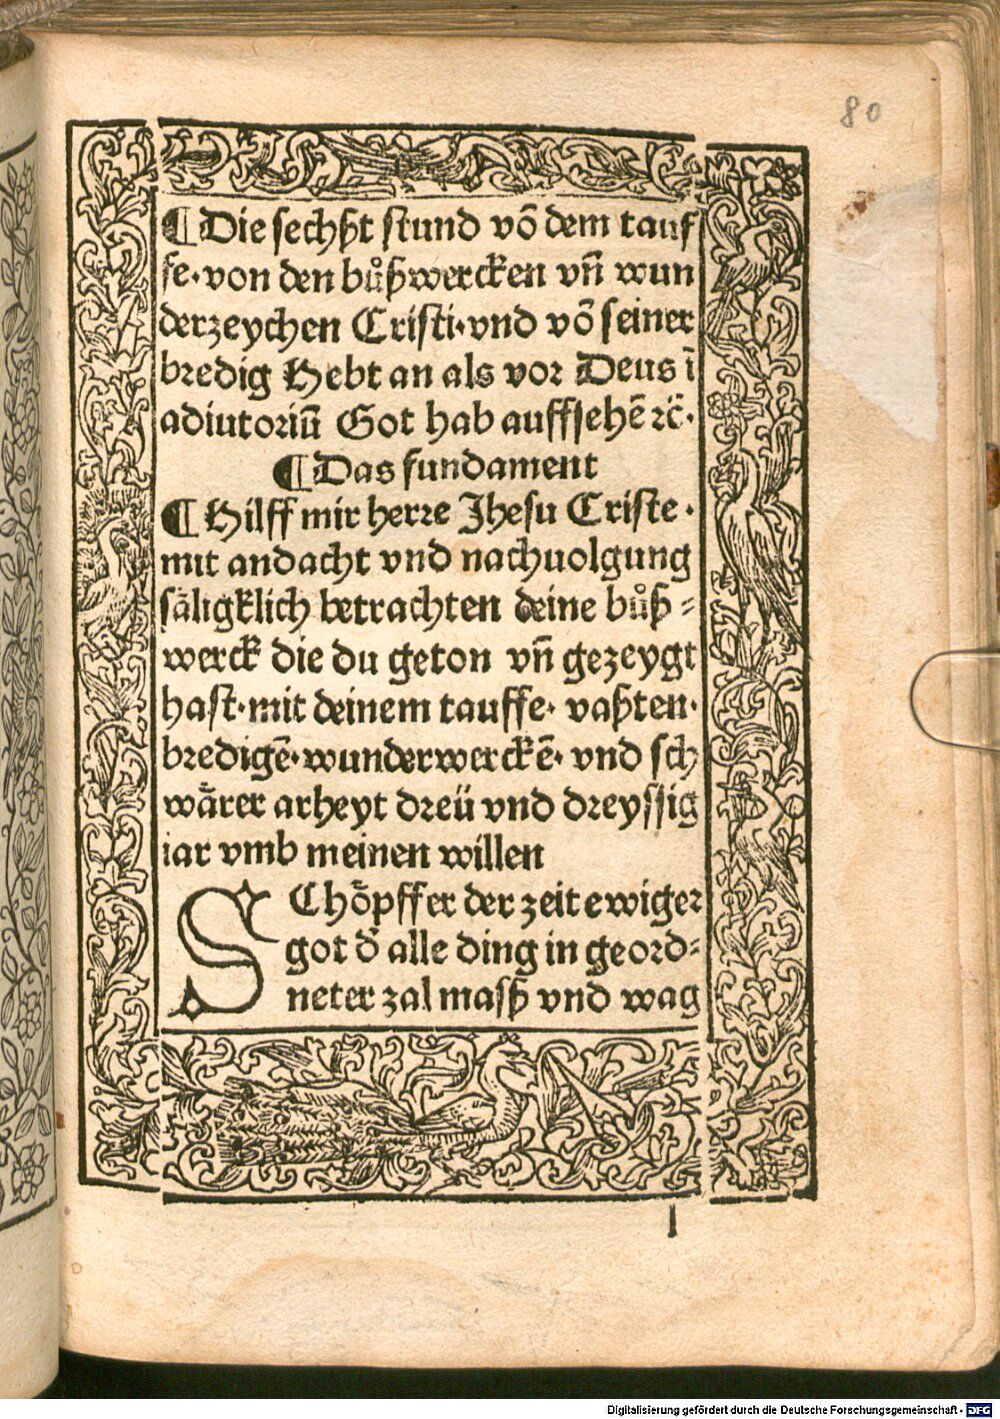 80
¶Die sechßt stund võ dem tauf
fe·von den bůßwercken vñ wun
derzeychen Cristi·vnd võ seiner
bredig Hebt an als vor Deus ĩ
adiutoriũ Got hab auffsehẽ ꝛc̃·
¶Das fundament
¶Hilff mir herꝛe Jhesu Criste·
mit andacht vnd nachuolgung
säligklich betrachten deine bůß⸗
werck die du geton vñ gezeygt
hast·mit deinem tauffe· vaßten·
bredigẽ·wunderwerckẽ· vnd sch
wärer arheyt dreü vnd dreyssig
iar vmb meinen willen
SChöpffer der zeit ewiger
got d̕ alle ding in geord⸗
neter zal masß vnd wag
l
Digitalisierung gefördert durch die Deutsche Forschungsgemeinschaft - DFG